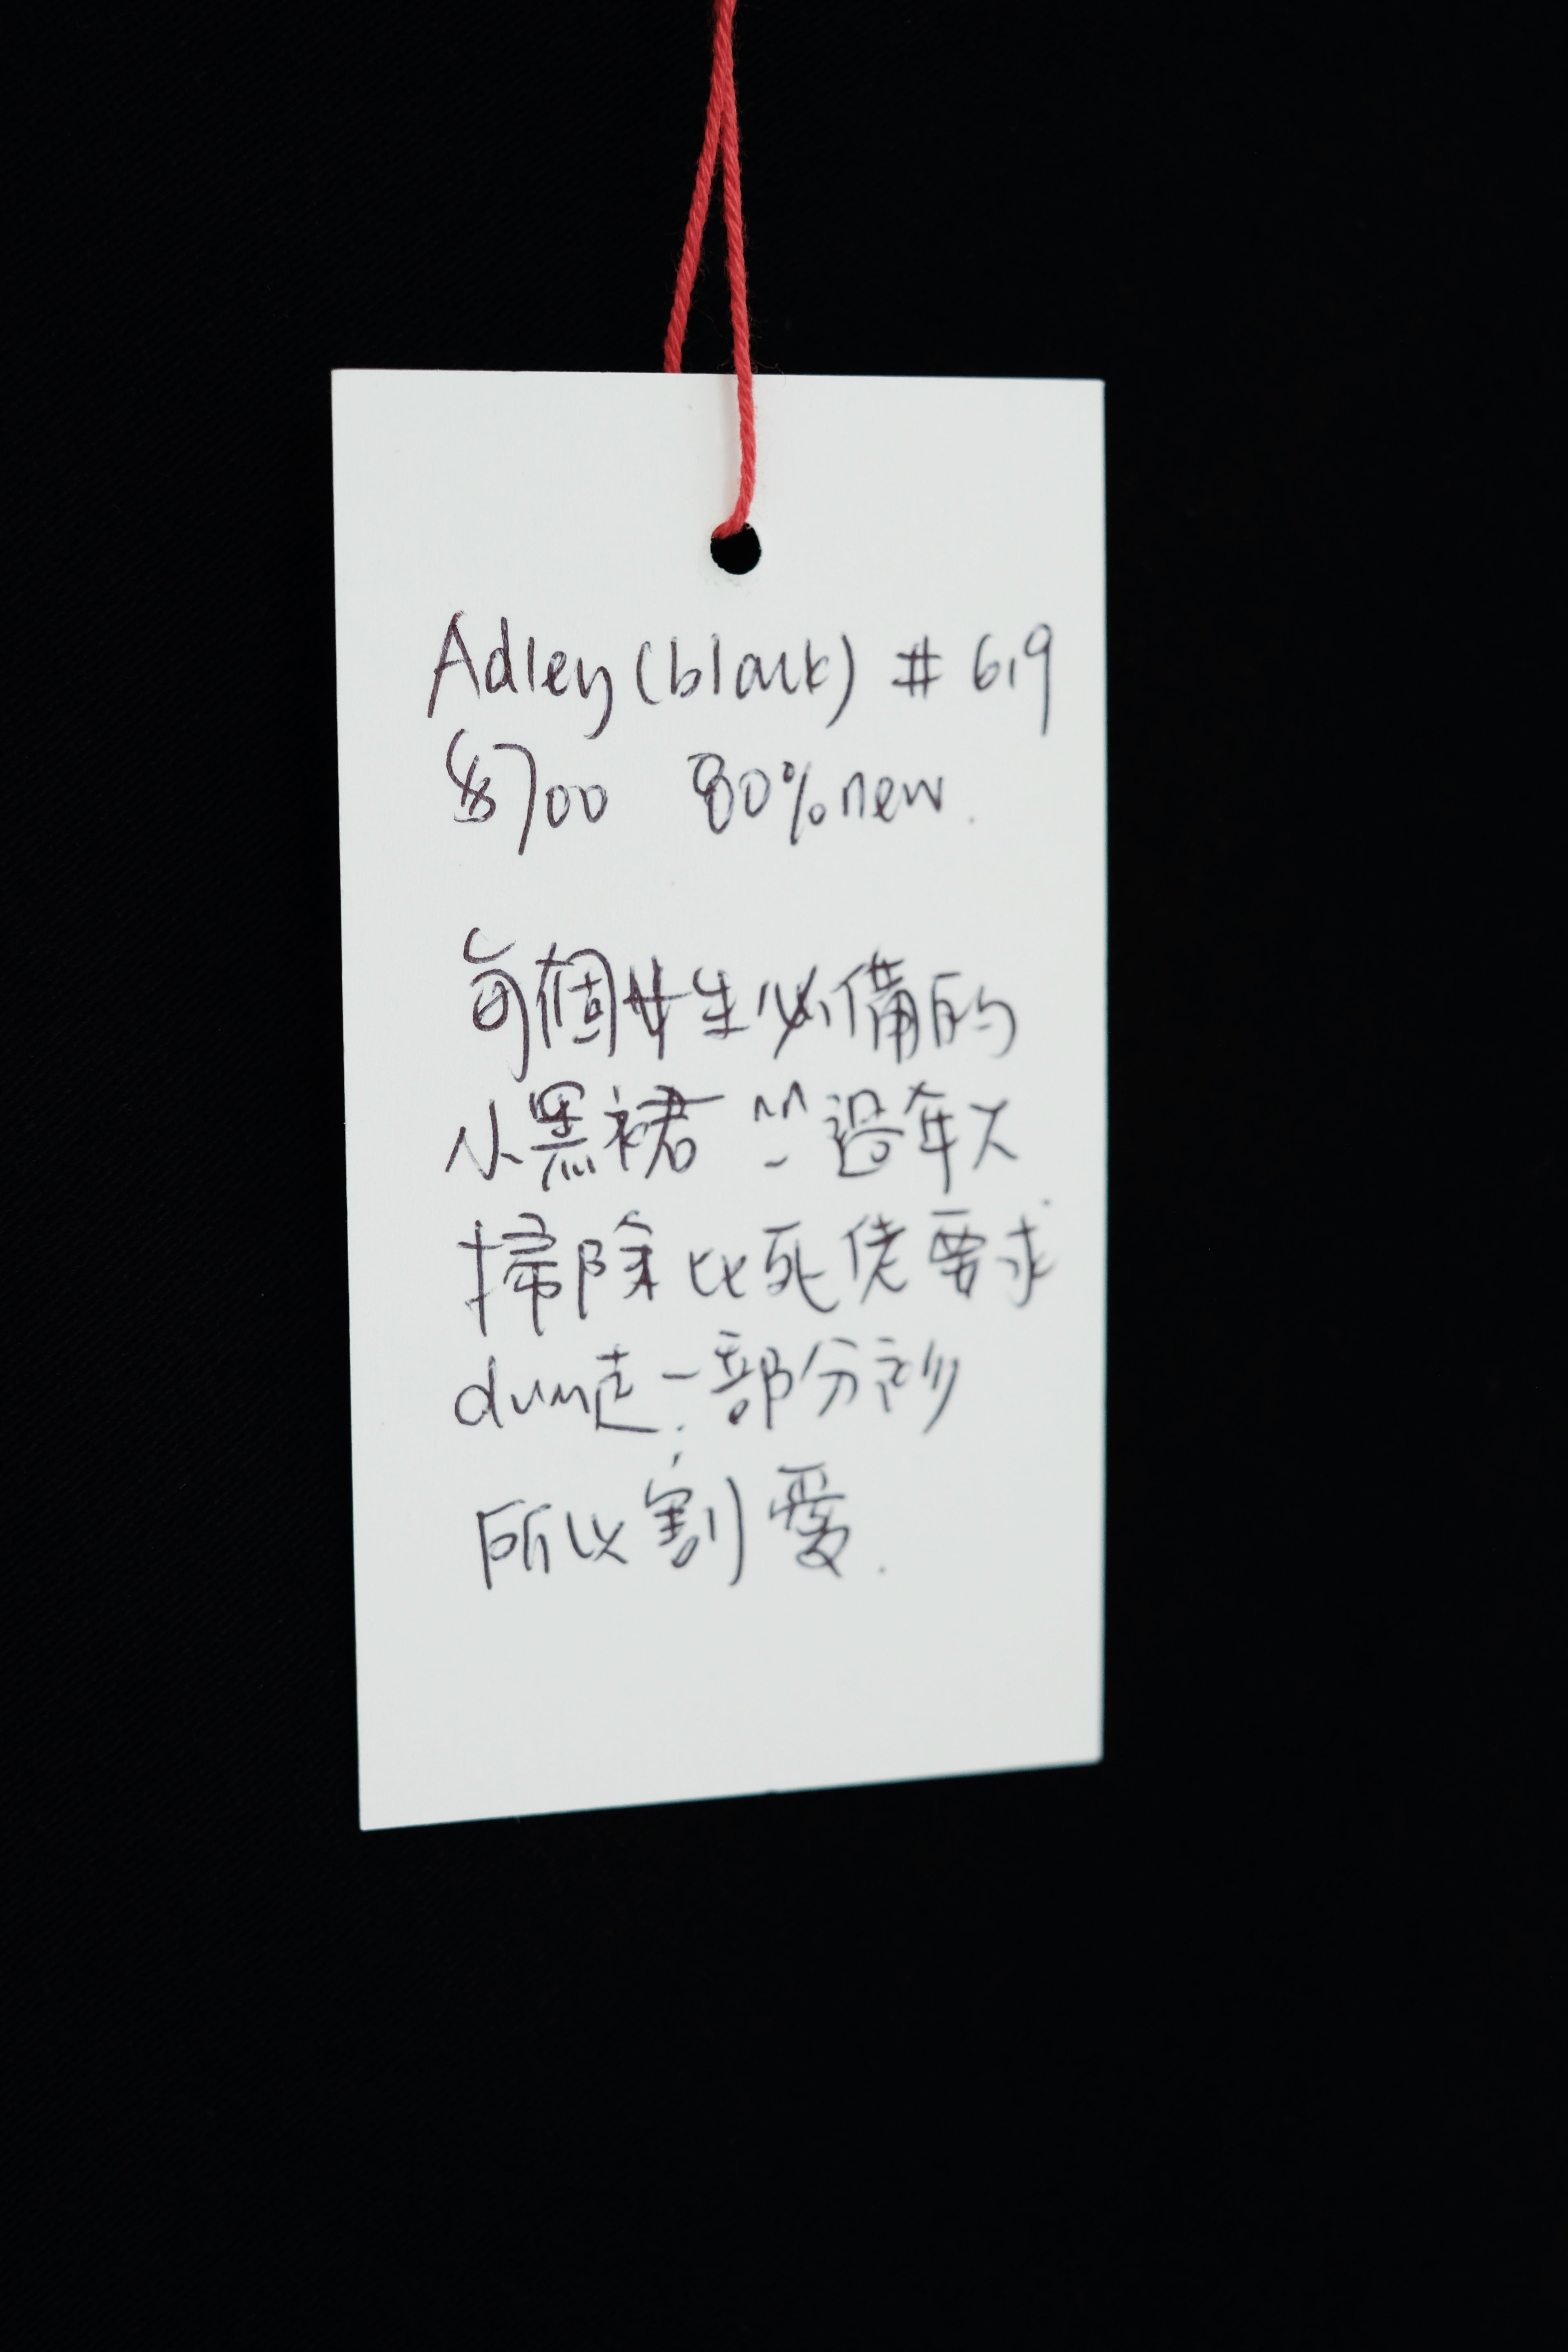 Adley (black) # 619
$700 80% new.
每個女生必備的
小黑裙 ^^ 過年大
掃除比死佬要求
dum走一部分衫
所以割愛.